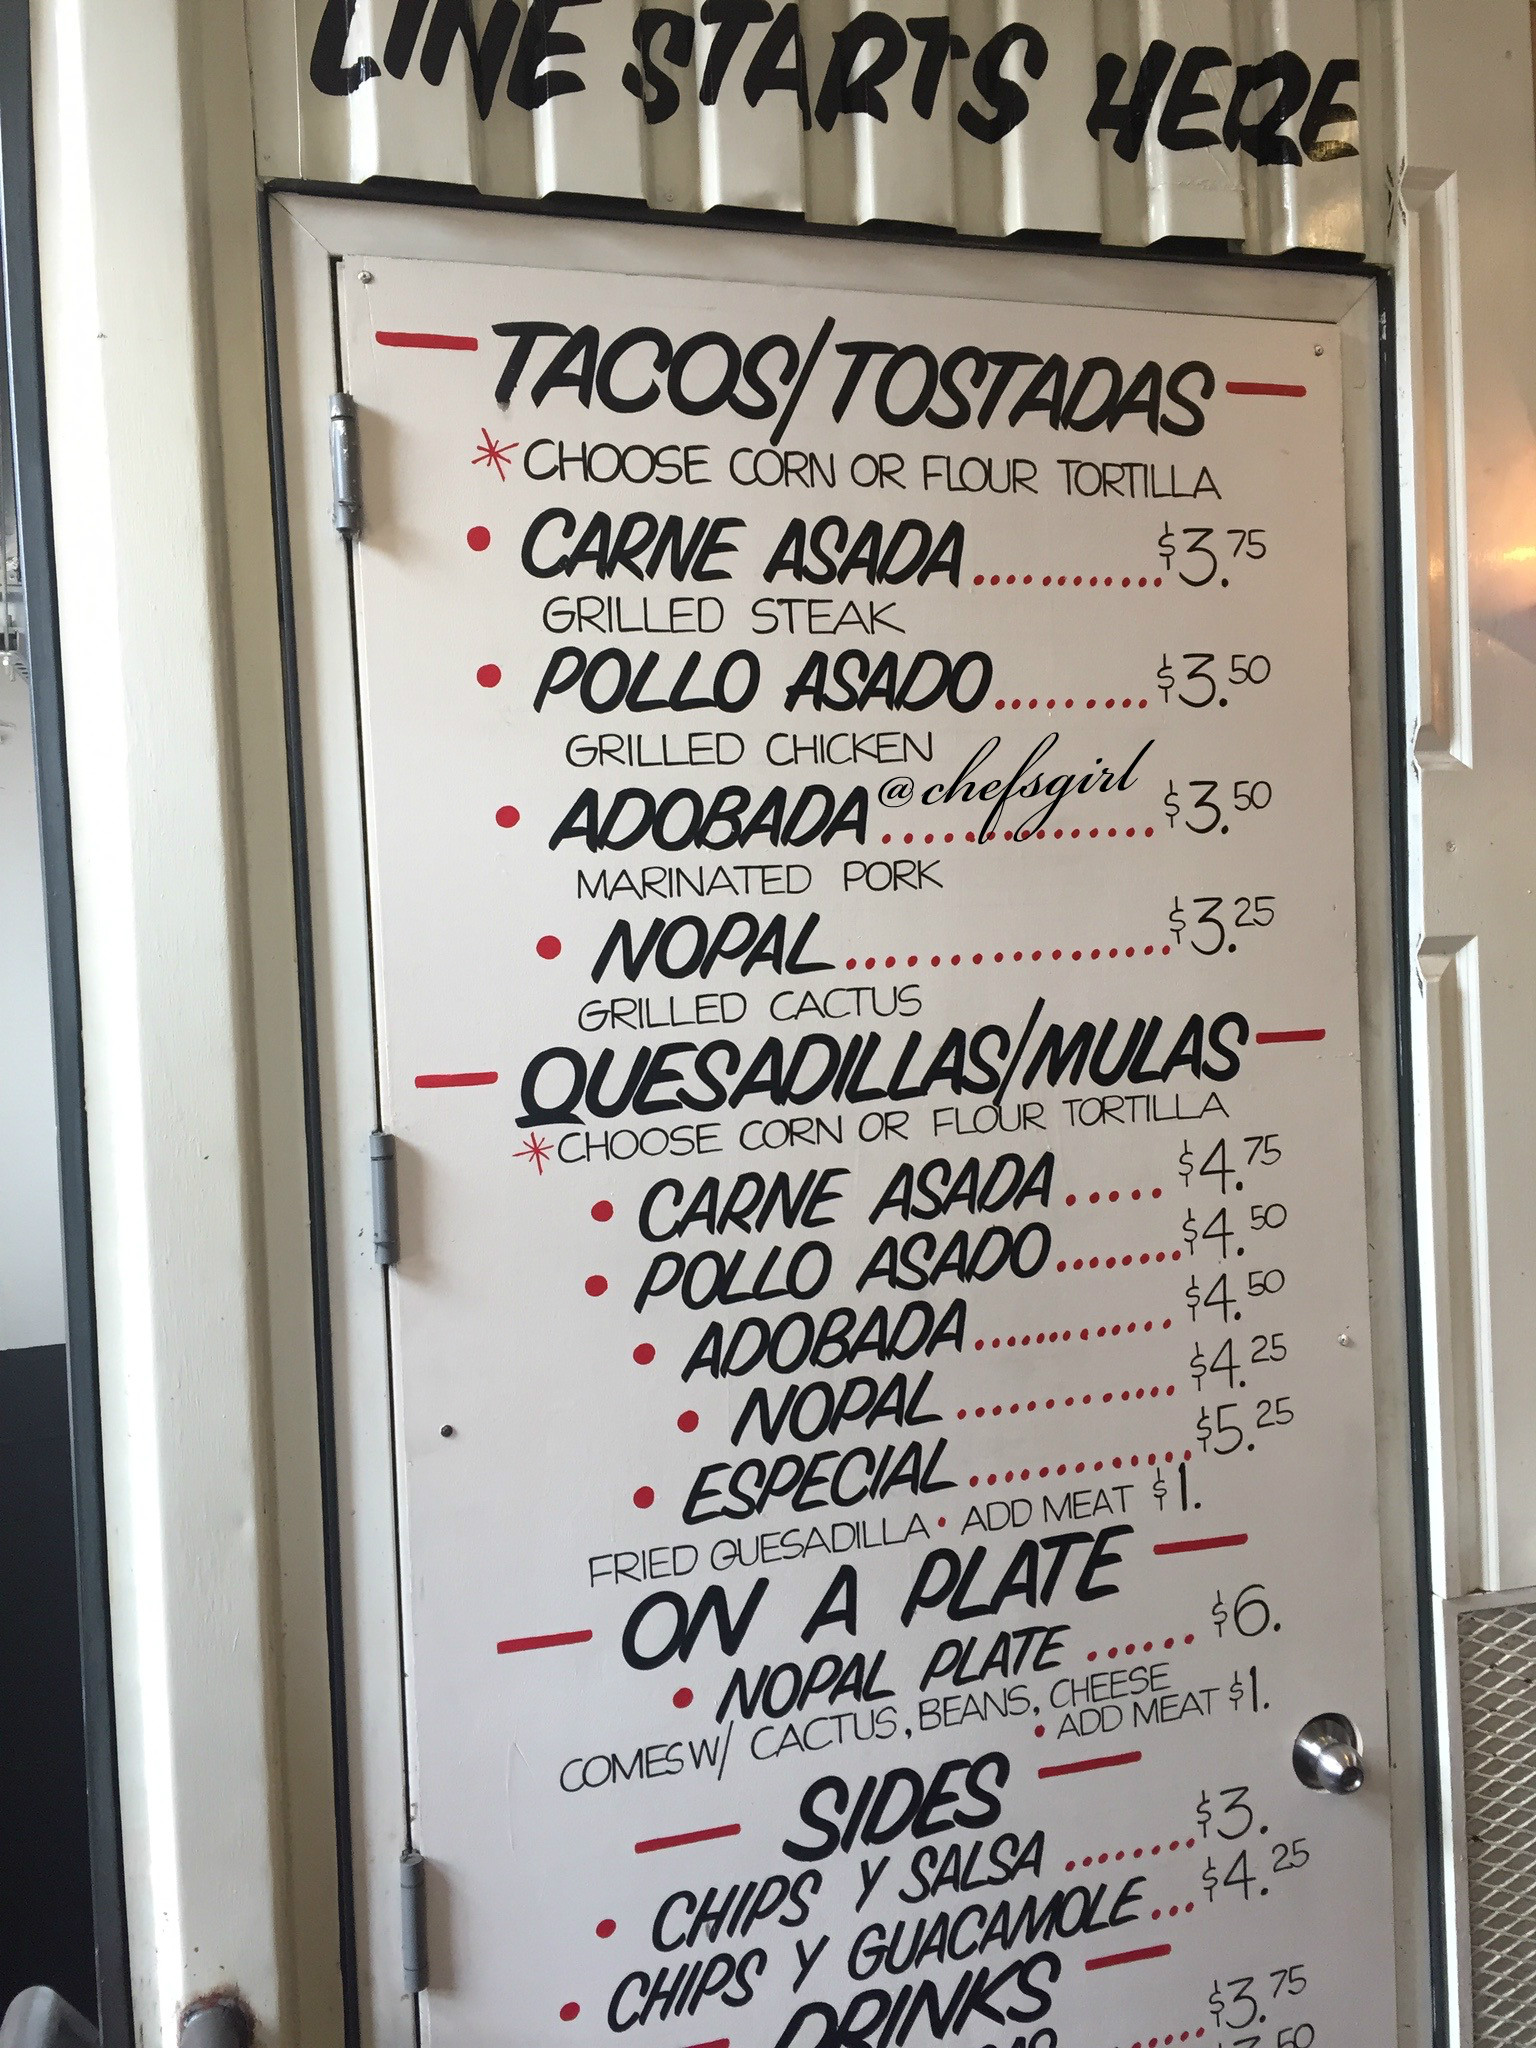 LINE STARTS HERE
TACOS/TOSTADAS
*CHOOSE CORN OR FLOUR TORTILLA
• CARNE ASADA............. $3.75
GRILLED STEAK
• POLLO ASADO......... $3.50
GRILLED CHICKEN
@chefsgirl
• ADOBADA.............. $3.50
MARINATED PORK
• NOPAL................ $3.25
GRILLED CACTUS
QUESADILLAS/MULAS
*CHOOSE CORN OR FLOUR TORTILLA
• CARNE ASADA..... $4.75
• POLLO ASADO........ $4.50
• ADOBADA............ $4.50
• NOPAL............. $4.25
• ESPECIAL............. $5.25
FRIED QUESADILLA • ADD MEAT $1.
ON A PLATE
• NOPAL PLATE...... $6.
COMES W/ CACTUS, BEANS, CHEESE
• ADD MEAT $1.
SIDES
• CHIPS Y SALSA........ $3.
• CHIPS Y GUACAMOLE... $4.25
DRINKS
$3.75
.50